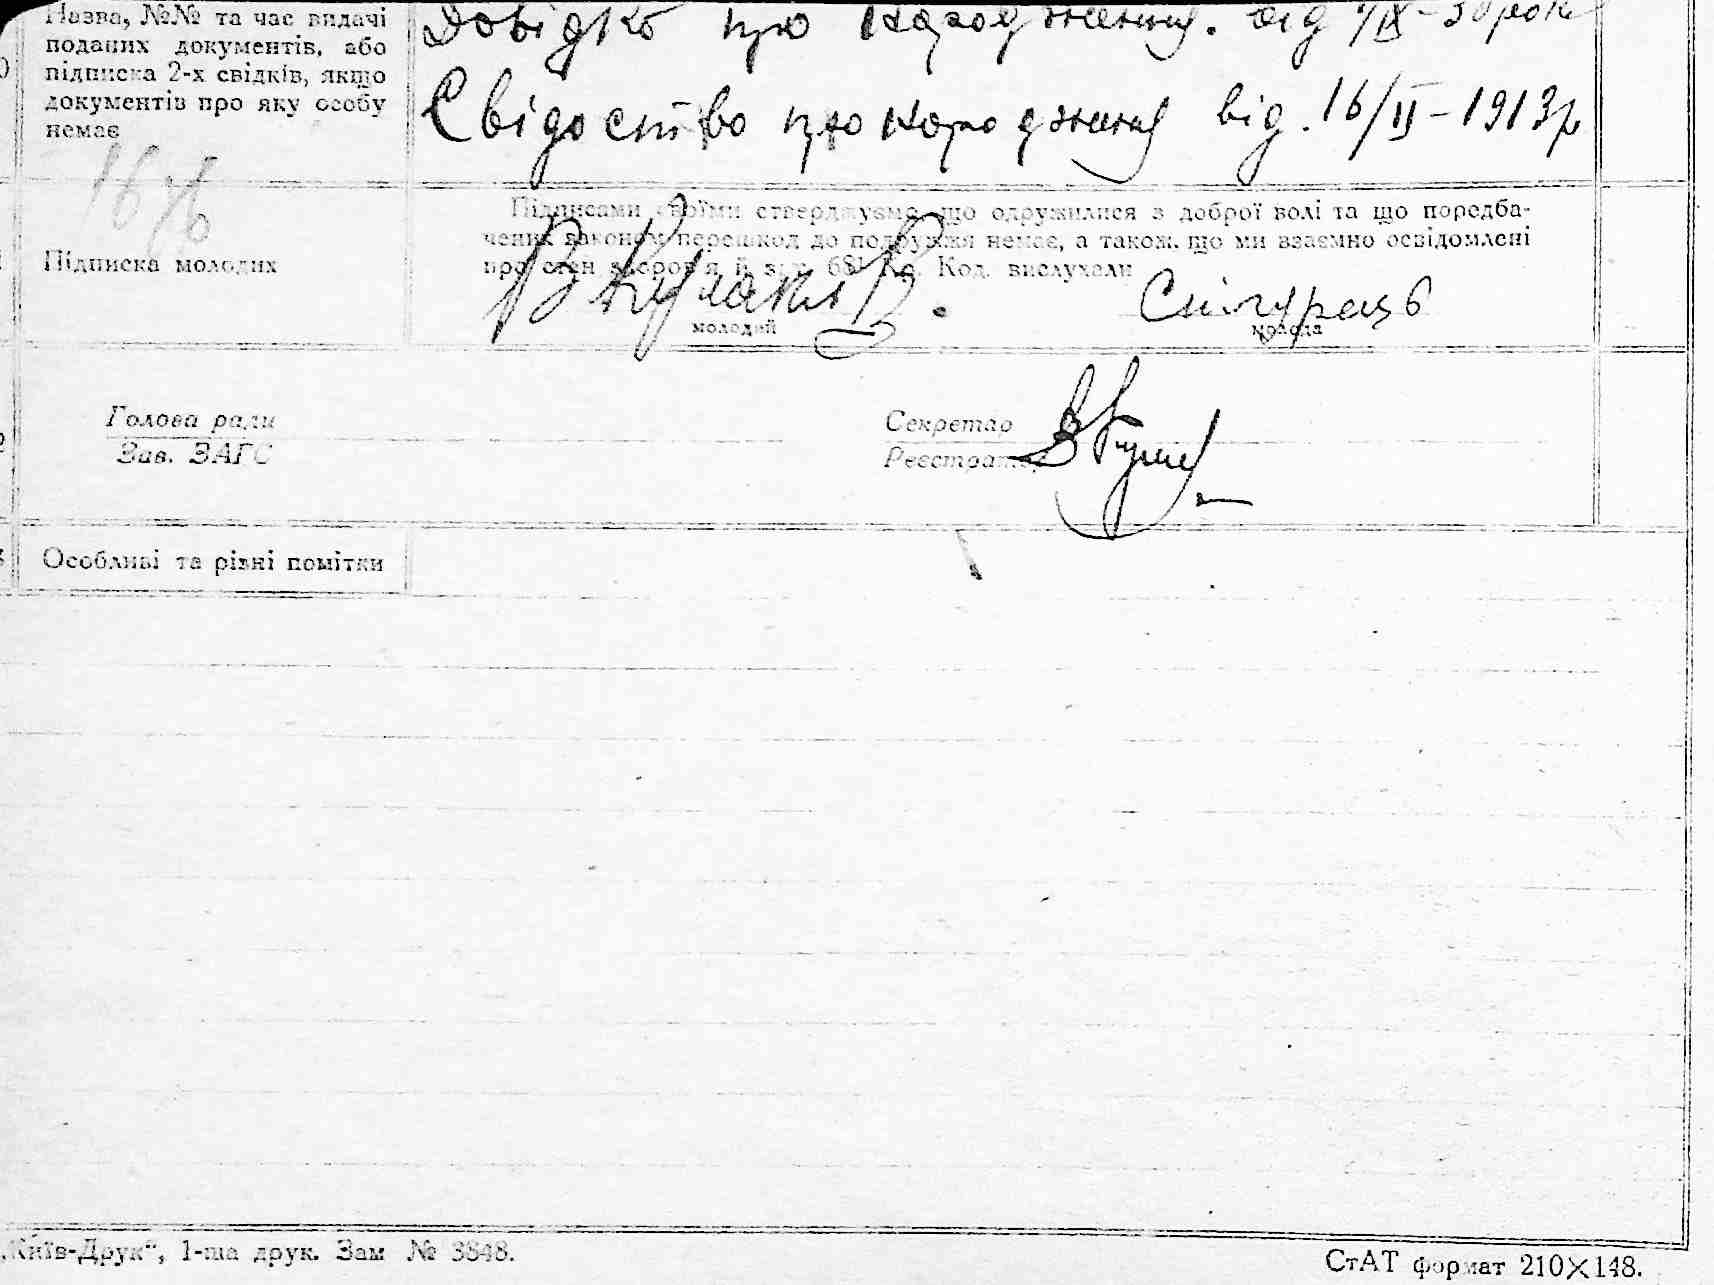 Назва, №№ та час видачі
поданих документів, або
підписка 2-х свідків, якщо
документів про яку особу
немає
Довідка про народження. від /IX-30 роки
Свідоство про народження від. 16/II-1913р
16
Підписами своїми стверджуємо, що одружилися з доброї волі та що передба-
чених законом перешкод до подружжя немає, а також, що ми взаємно освідомлені
про стан здоров'я й зміст 681 Кр. Код. вислухали
Підписка молодих
молодий
молода
Голова ради
Зав. ЗАГС
Секретар
Реєстратор
Особливі та різні помітки
„Київ-Друк“, 1-ша друк. Зам № 3848.
СтАТ формат 210×148.